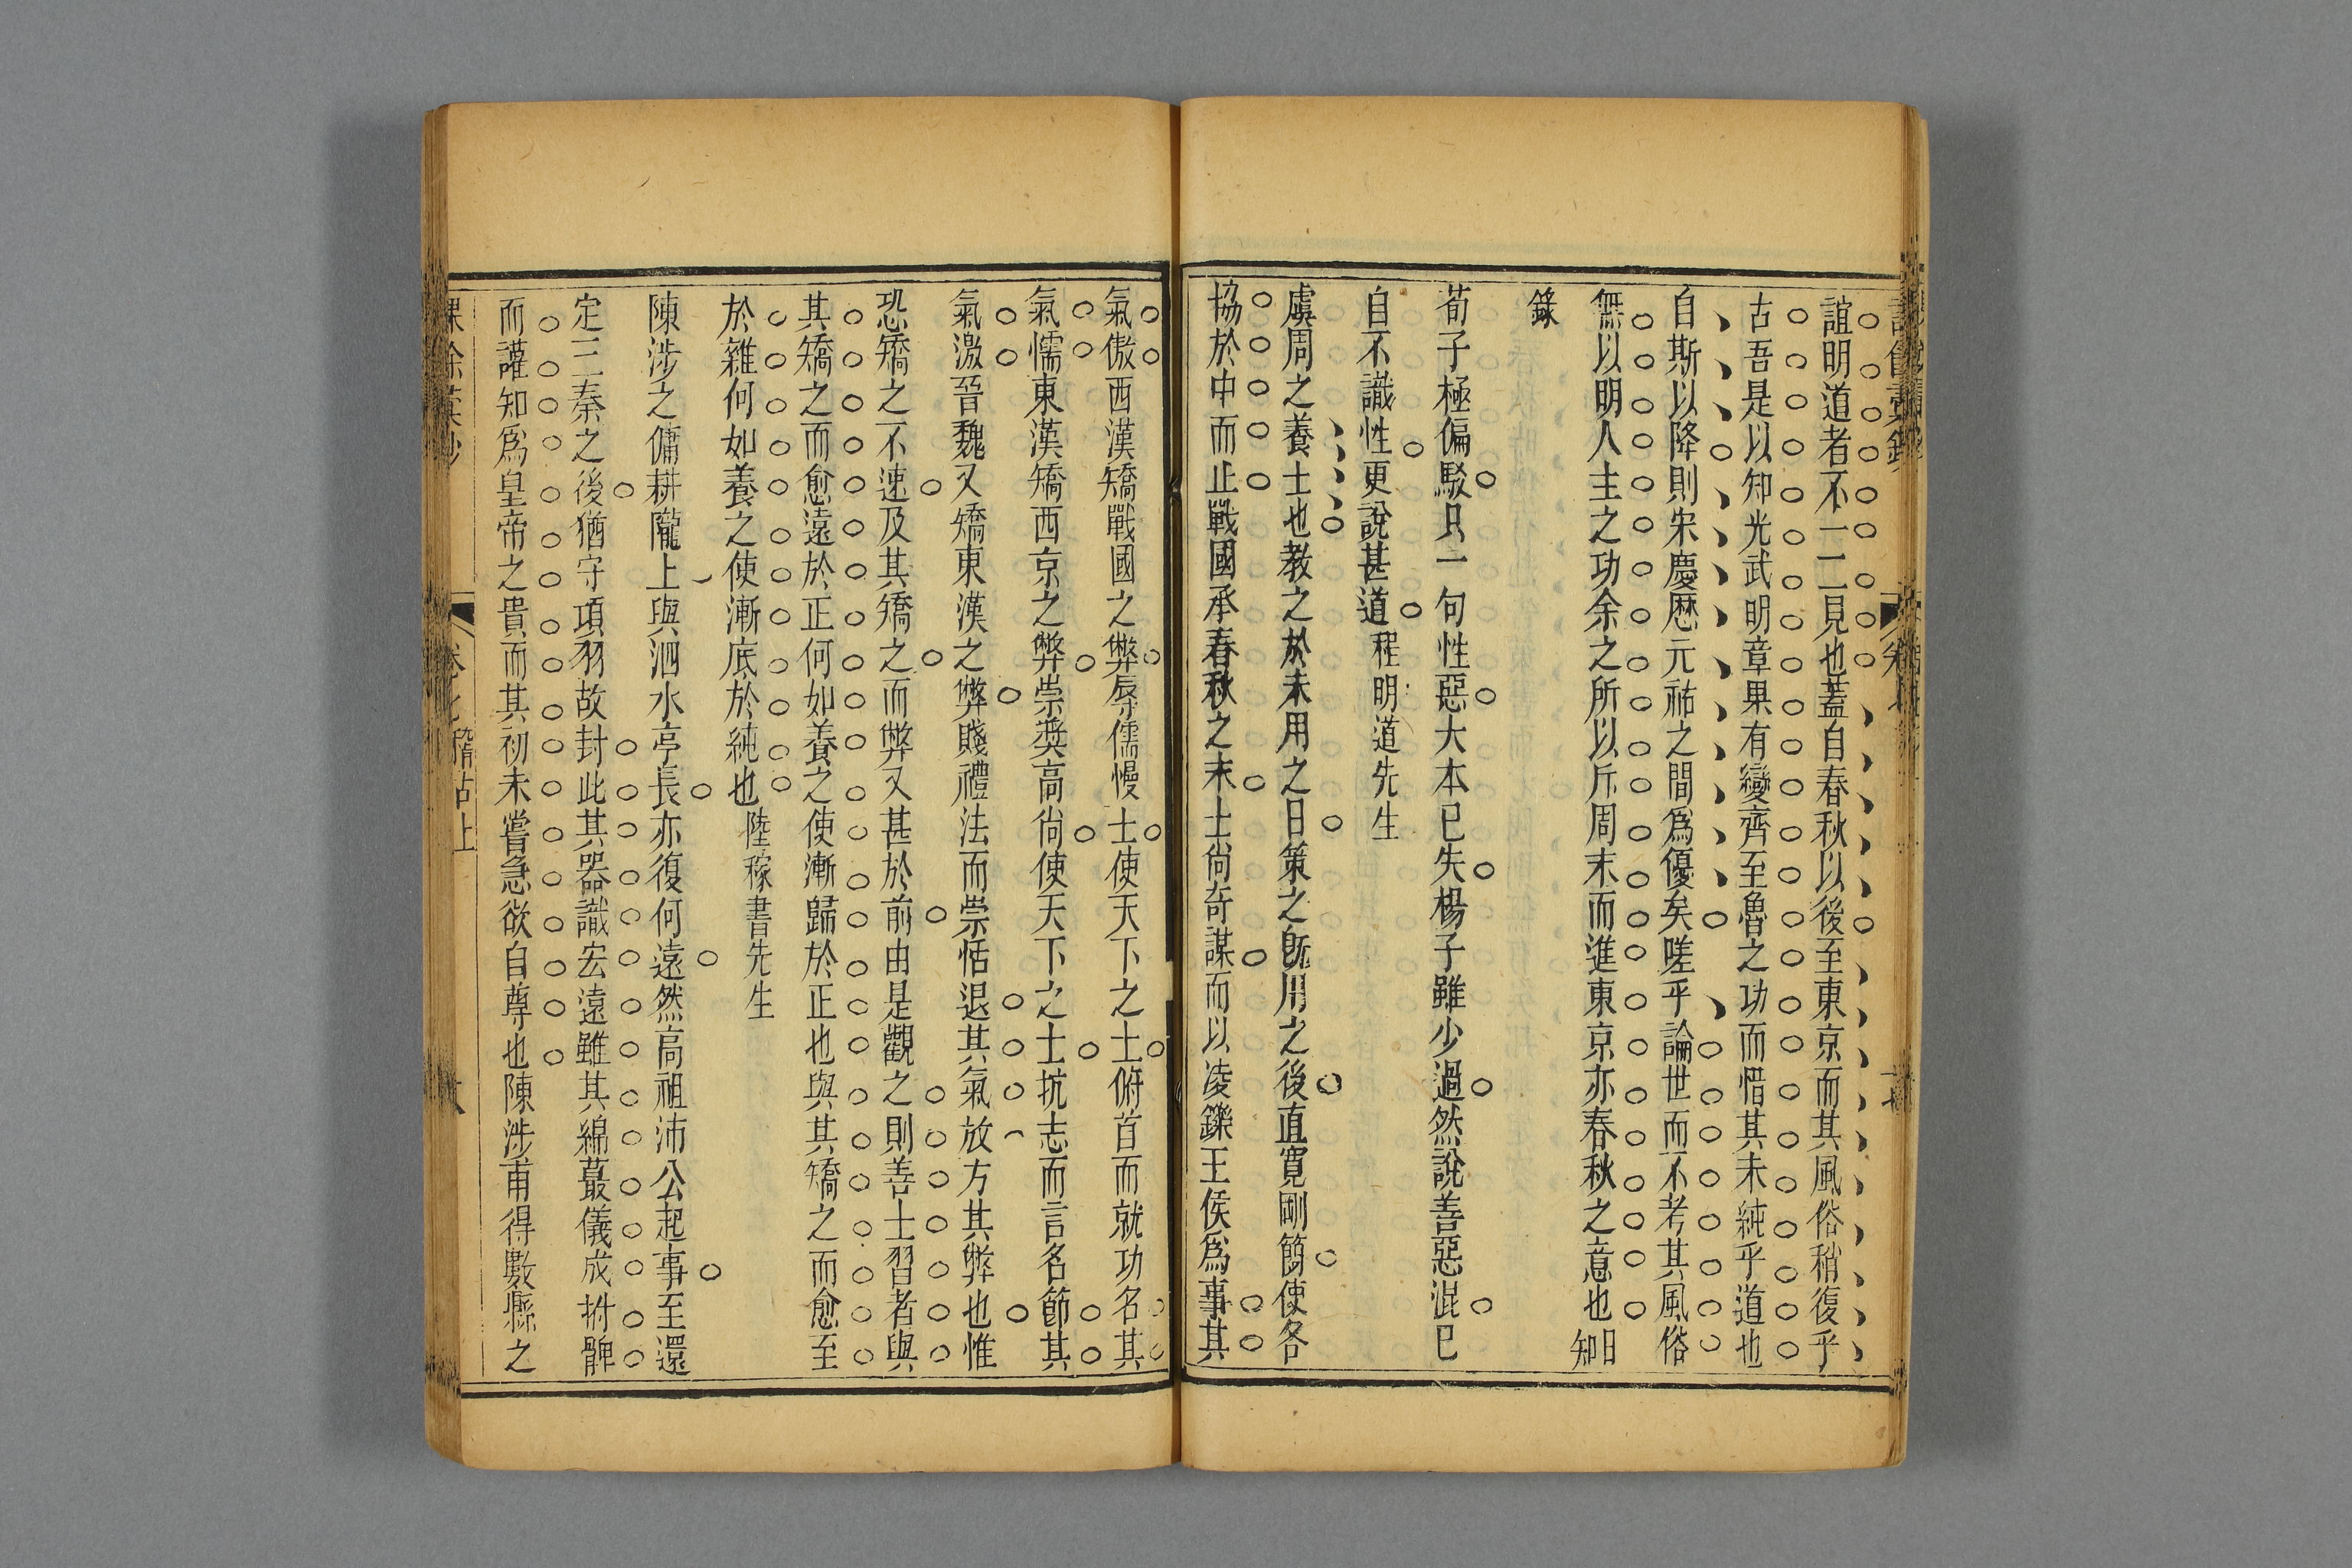 誼明道者不一二見也蓋自春秋以後至東京而其風俗稍復乎
古吾是以知光武明章果有變齊至魯之功而惜其未純乎道也
自斯以降則宋慶厯元祐之間為優矣嗟乎論世而不考其風俗
無以明人主之功余之所以斥周末而進東京亦春秋之意也日知
錄
荀子極偏駁只一句性惡大本已失楊子雖少過然說善惡混已
自不識性更說甚道程明道先生
虞周之養士也教之於未用之日策之旣用之後直寬剛簡使各
協於中而止戰國承春秋之末士尙奇謀而以凌鑠王侯爲事其
氣傲西漢矯戰國之弊辱儒慢士使天下之士俯首而就功名其
氣懦東漢矯西京之弊崇奬高尙使天下之士抗志而言名節其
氣激晉魏又矯東漢之弊賤禮法而崇恬退其氣放方其弊也惟
恐矯之不速及其矯之而弊又甚於前由是觀之則善士習者與
其矯之而愈遠於正何如養之使漸歸於正也與其矯之而愈至
於雜何如養之使漸底於純也陸稼書先生
陳涉之傭耕隴上與泗水亭長亦復何遠然高祖沛公起事至還
定三秦之後猶守項羽故封此其器識宏遠雖其綿蕞儀成拊髀
而讙知爲皇帝之貴而其初未嘗急欲自尊也陳涉甫得數縣之
課餘彙鈔
卷七 稽古上